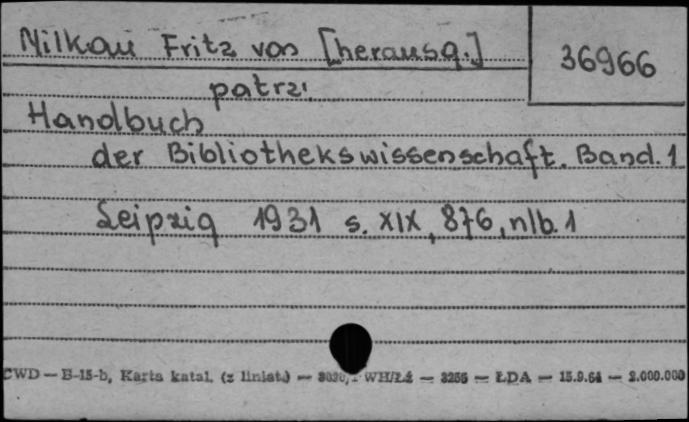 Milkau Fritz von [herausg.]
36966
patrz:
Handbuch
der Bibliothekswissenschaft. Band. 1
Leipzig 1931 s. XIX, 876, nlb. 1
CWD — B-15-b, Karta katal. (z liniat.) — WH/Łź — 3255 — ŁDA — 15.9.64 — 2.000.000